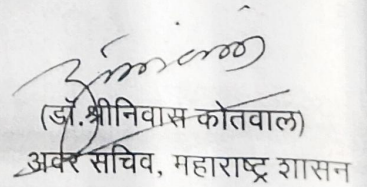 (डॉ.श्रीनिवास कोतवाल)
अवर सचिव, महाराष्ट्र शासन